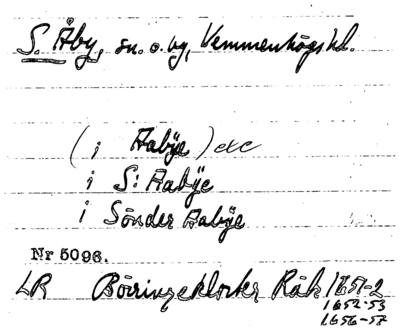 S. Åby, sn. o. by, Vemmenhögs hd.
( i Aabÿe ) etc
i S: Aabÿe
i Sönder Aabÿe
Nr 5096.
LR Börringekloster Räk 1651-2
1652-53
1656-57